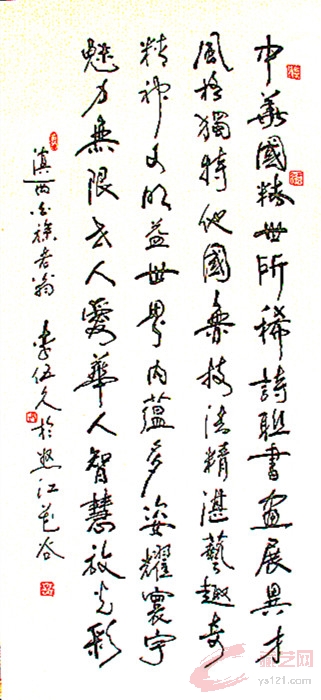 中華國粹世所稀詩聯書畫展異才
風格獨特他國無技法精湛藝趣奇
精神文明益世界内蘊多姿耀寰宇
魅力無限人愛華人智慧放光彩
滇西老翁李伍久於怒江花谷
艺网
ys121.com